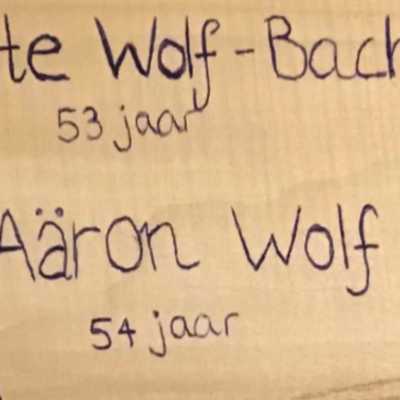 te Wolf-Bach
53 jaar
Aäron Wolf
54 jaar